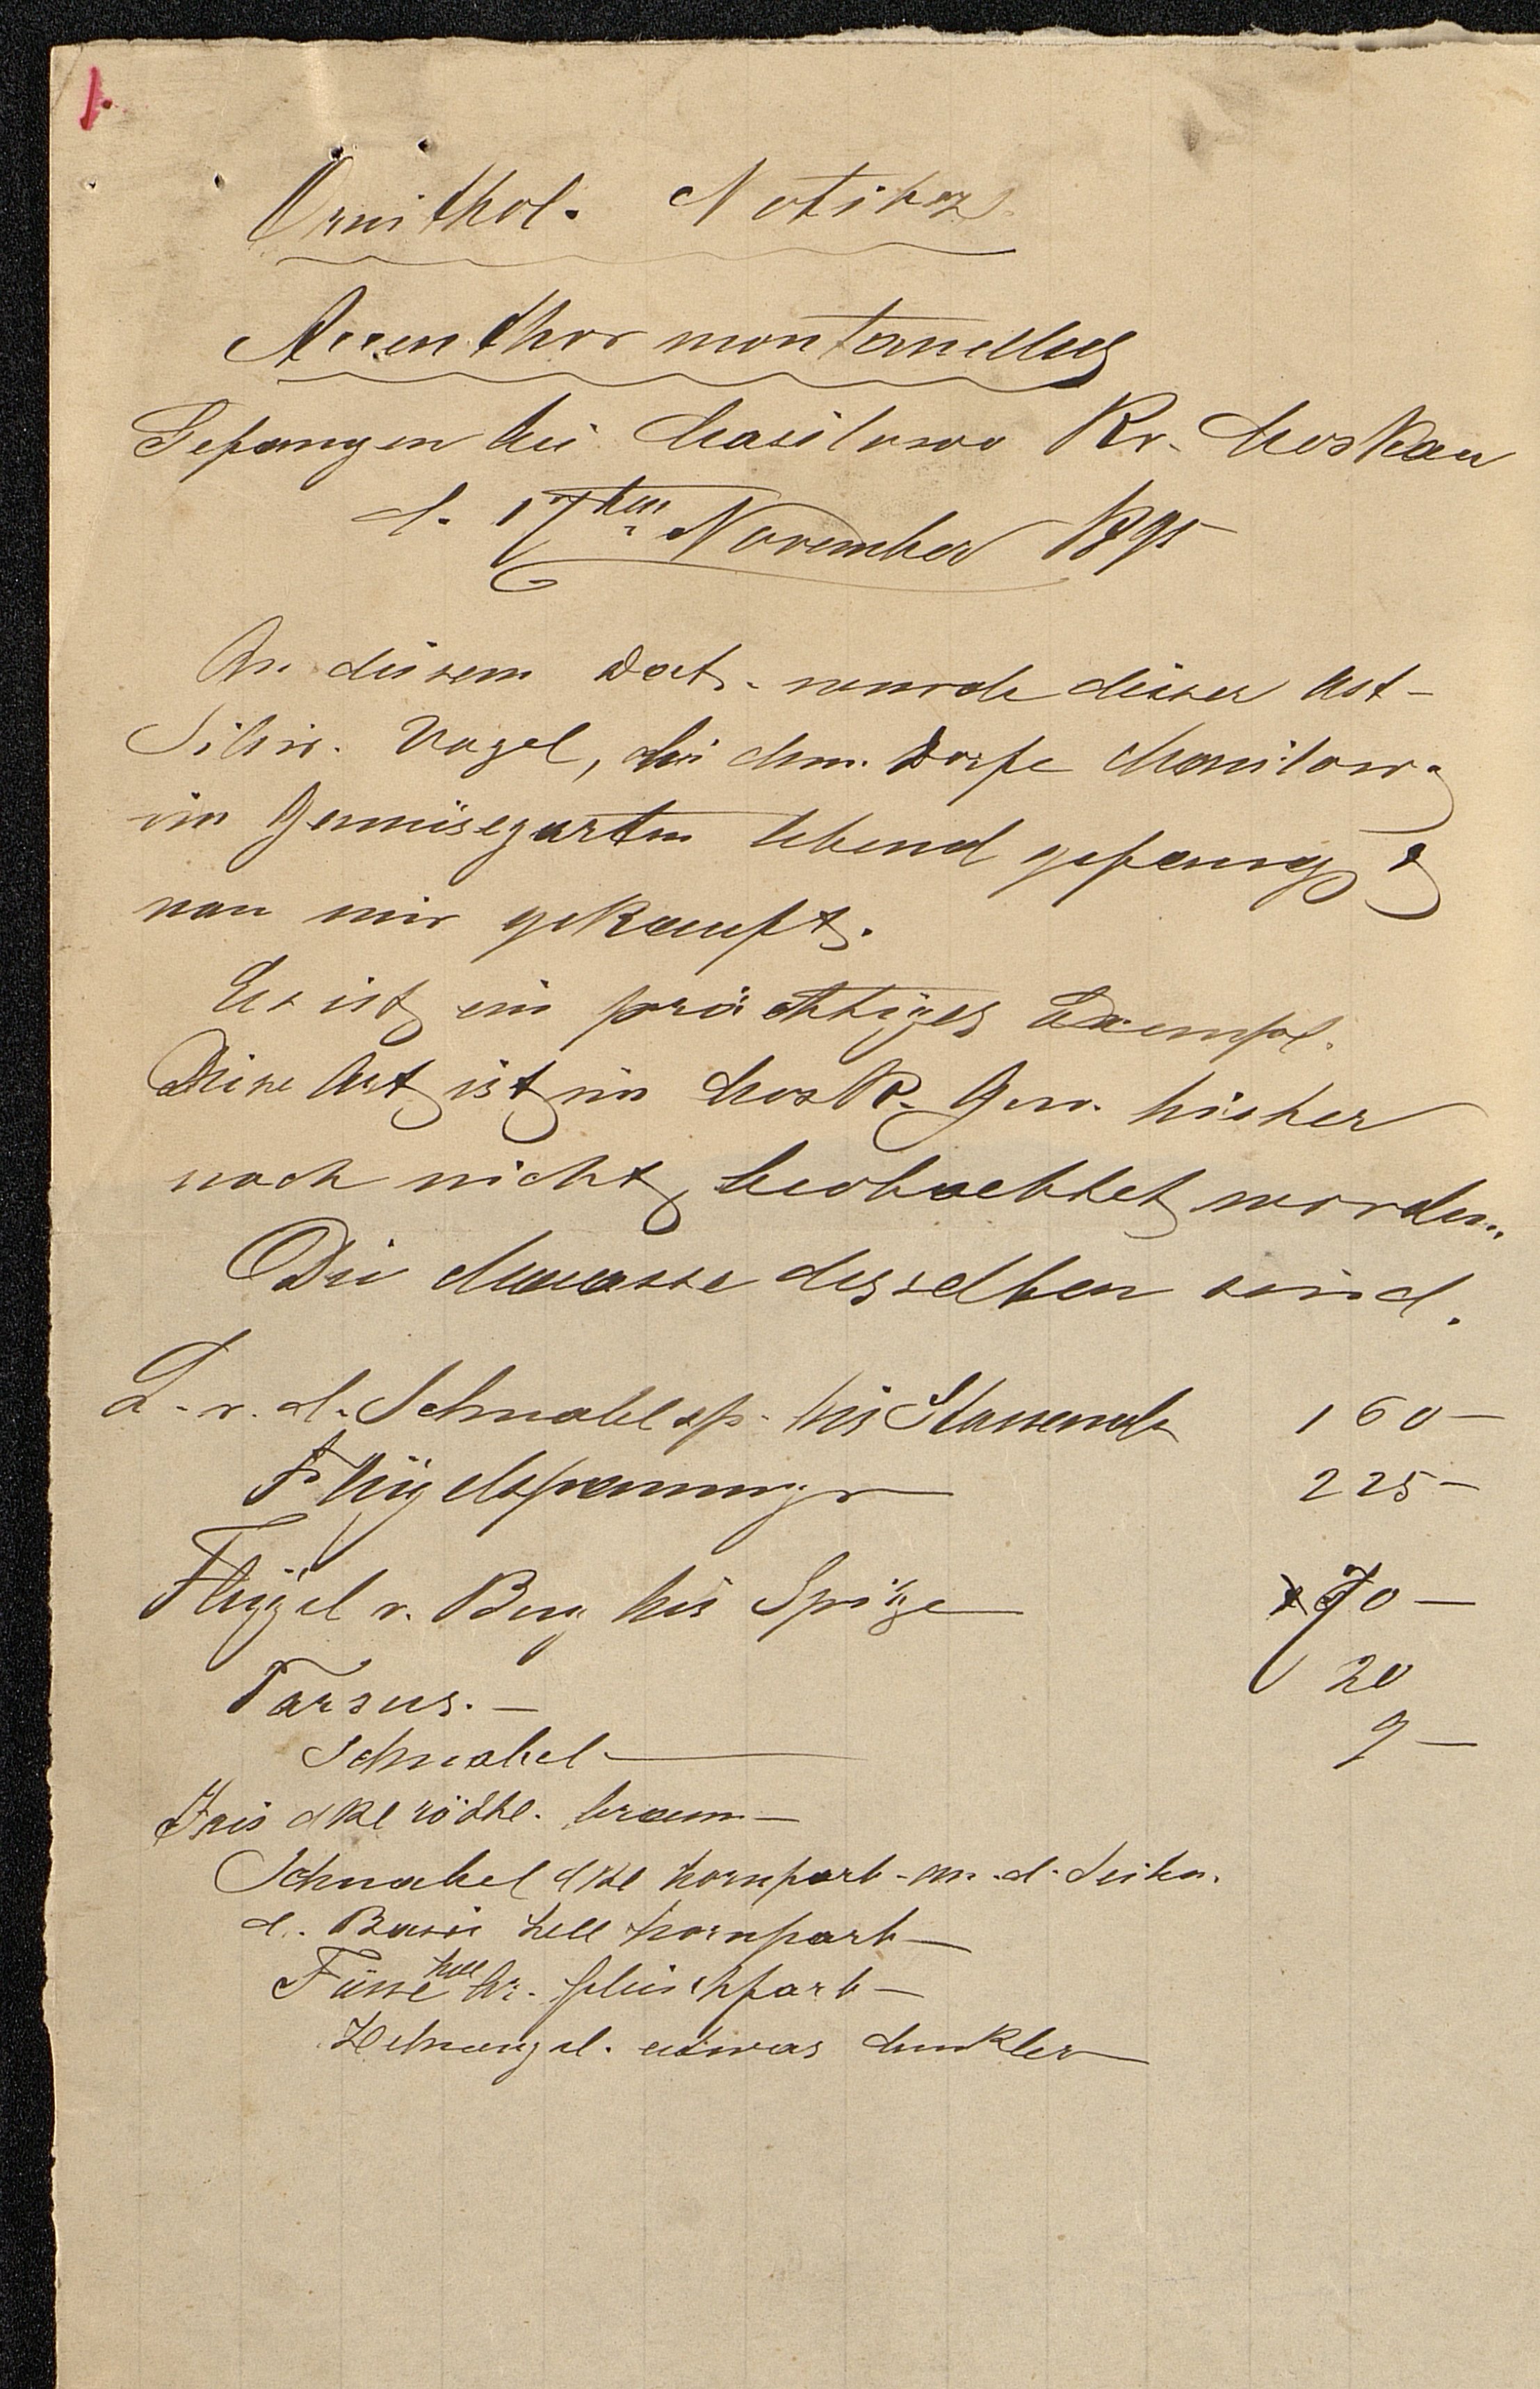 1.
Ornithol. Notizen
Accenthor montanellus
Gefangen bei Masilowo Kr. Moskau
d. 17ten November 1895
An diesem Dat. wurde dieser Ost-
Sibir. Vogel, bei dem Dorfe Masilowo
im Gemüsegarten lebend gefang. &
von mir gekauft.
Es ist ein prächtiges Exempl.
Diese Art ist im Mosk. Gouv. bisher
noch nicht beobachtet worden.
Die Maasse desselben sind.
L. v. d. Schnabelsp. bis 160 —
Flügelspannung — 225 —
Flügel v. Bug bis Spitze — 70 —
Tarsus. — 20
Schnabel — 9 —
Iris dkl röthl. braun —
Schnabel dkl hornfarb. an d. Seiten
d. Basis hell hornfarb —
Füsse hell br. fleischfarb —
Zehen etwas dunkler —